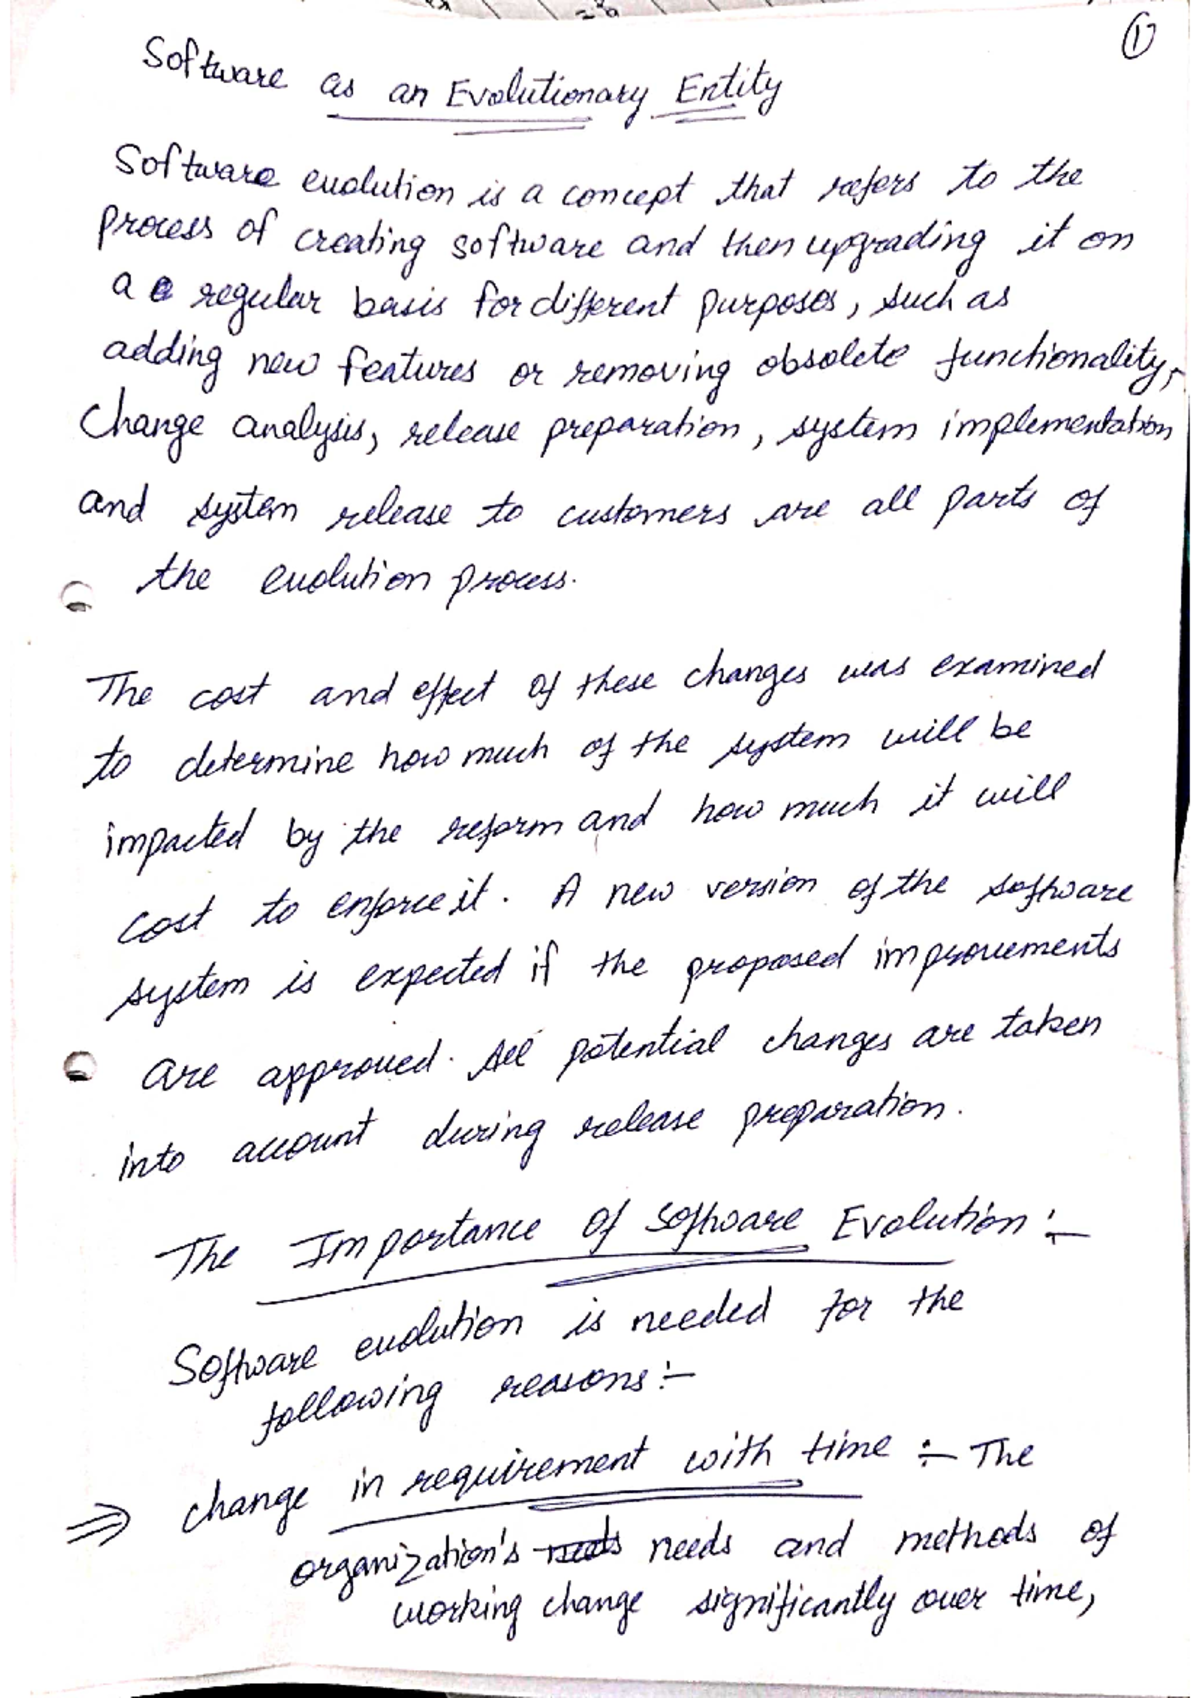 ①
Software as an Evolutionary Entity
Software evolution is a concept that refers to the
process of creating software and then upgrading it on
a regular basis for different purposes, such as
adding new features or removing obsolete functionality,
Change analysis, release preparation, system implementation
and system release to customers are all parts of
the evolution process.
The cost and effect of these changes was examined
to determine how much of the system will be
impacted by the reform and how much it will
cost to enforce it. A new version of the software
system is expected if the proposed improvements
are approved. All potential changes are taken
into account during release preparation.
The Importance of Software Evolution :-
Software evolution is needed for the
following reasons :-
⇒ change in requirement with time :- The
organization's needs and methods of
working change significantly over time,